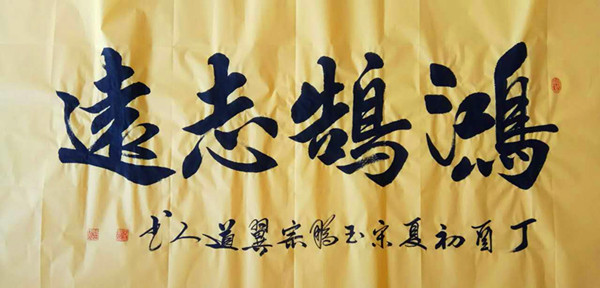 鴻鵠志遠
丁酉初夏宋玉鵬宗翼道人书